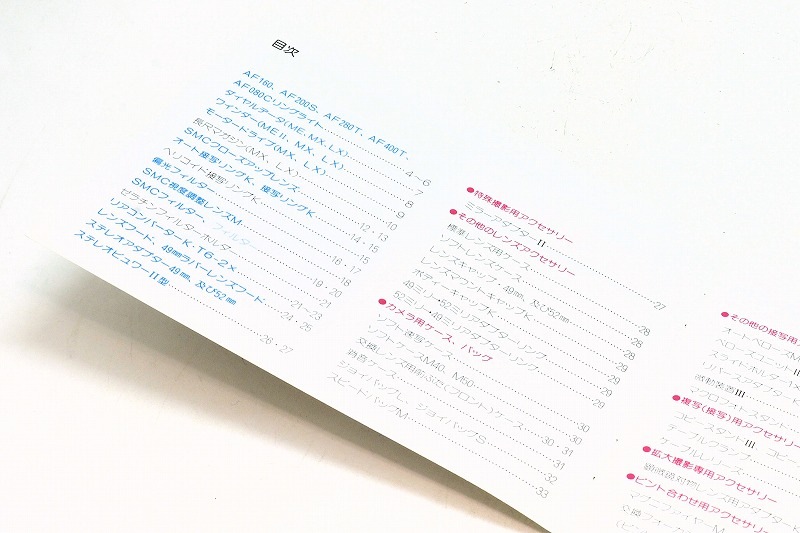 目次
AF160、AF200S、AF280T、AF400T、
AF080Cリングライト 4～6
ダイヤルデータ(ME、MX、LX) 7
ワインダー(MEⅡ、MX、LX) 8
モータードライブ(MX、LX) 9
長尺マガジン(MX、LX) 9
SMCクローズアップレンズ 10
オート接写リングK、接写リングK 12・13
ヘリコイド接写リングK 14・15
偏光フィルター 15
SMC視度調整レンズM 16・17
SMCフィルター、フィルター 18
ゼラチンフィルターホルダー 19・20
リアコンバーターK・T6-2× 21
レンズフード、49㎜ラバーレンズフード 21～23
ステレオアダプター49㎜、及び52㎜ 24・25
ステレオビュワーⅡ型 26・27
●特殊撮影用アクセサリー
ミラーアダプターⅡ 27
●その他のレンズアクセサリー
標準レンズ用ケース 28
ソフトレンズケース 28
レンズキャップ・49㎜、及び52㎜ 28
レンズマウントキャップK 29
ボディーキャップK 29
49ミリ・52ミリアダプターリング 29
52ミリ・49ミリアダプターリング 29
●カメラ用ケース、バッグ
ソフト速写ケース 30
ソフトケースM40、M50 30
交換レンズ用前ぶた(フロント)ケース 30・31
特音ケース 31
ジョイバッグL、ジョイバッグS 32
スピードバッグM 33
●その他の接写用
オートベローズM
ベローズユニットⅡ
スライドホルダー1×
リバースアダプターK
微動装置Ⅲ
マクロフォトスタンド
●複写(接写)用アクセサリー
コピースタンドⅢ、コピー
テーブルクランプ
ケーブルレリーズ
●拡大撮影専用アクセサリー
顕微鏡対物レンズ用アダプターK
●ピント合わせ用アクセサリー
マグニファイヤーM